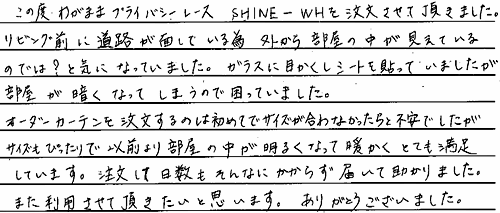 この度 わがままプライバシーレース SHINE-WHを注文させて頂きました。
リビング前に道路が面している為 外から部屋の中が見えている
のでは?と気になっていました。ガラスに目かくしシートを貼っていましたが
部屋が暗くなってしまうので困っていました。
オーダーカーテンを注文するのは初めてでサイズが合わなかったらと不安でしたが
サイズもぴったりで以前より部屋の中が明るくなって暖かくとても満足
しています。注文して日数もそんなにかからず届いて助かりました。
また利用させて頂きたいと思います。ありがとうございました。